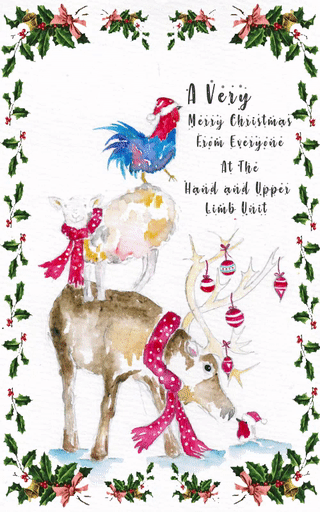 A Very
Merry Christmas
From Everyone
At The
Hand and Upper
Limb Unit